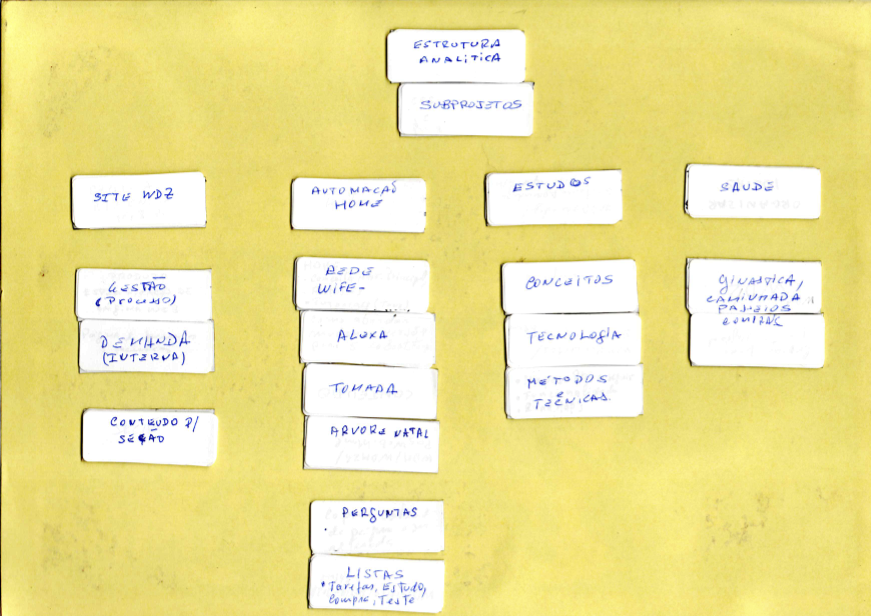 ESTRUTURA
ANALITICA
SUBPROJETOS
SITE WDZ
GESTÃO
(PROCESSO)
DEMANDA
(INTERNA)
CONTEUDO P/
SEÇÃO
AUTOMAÇÃO
HOME
REDE
WIFE-
ALEXA
TOMADA
ARVORE NATAL
PERGUNTAS
LISTAS
*Tarefas, Estudo,
Compre, Teste
ESTUDOS
CONCEITOS
TECNOLOGIA
METODOS
E
TECNICAS
SAUDE
GINASTICA,
CAMINHADA
PASSEIOS